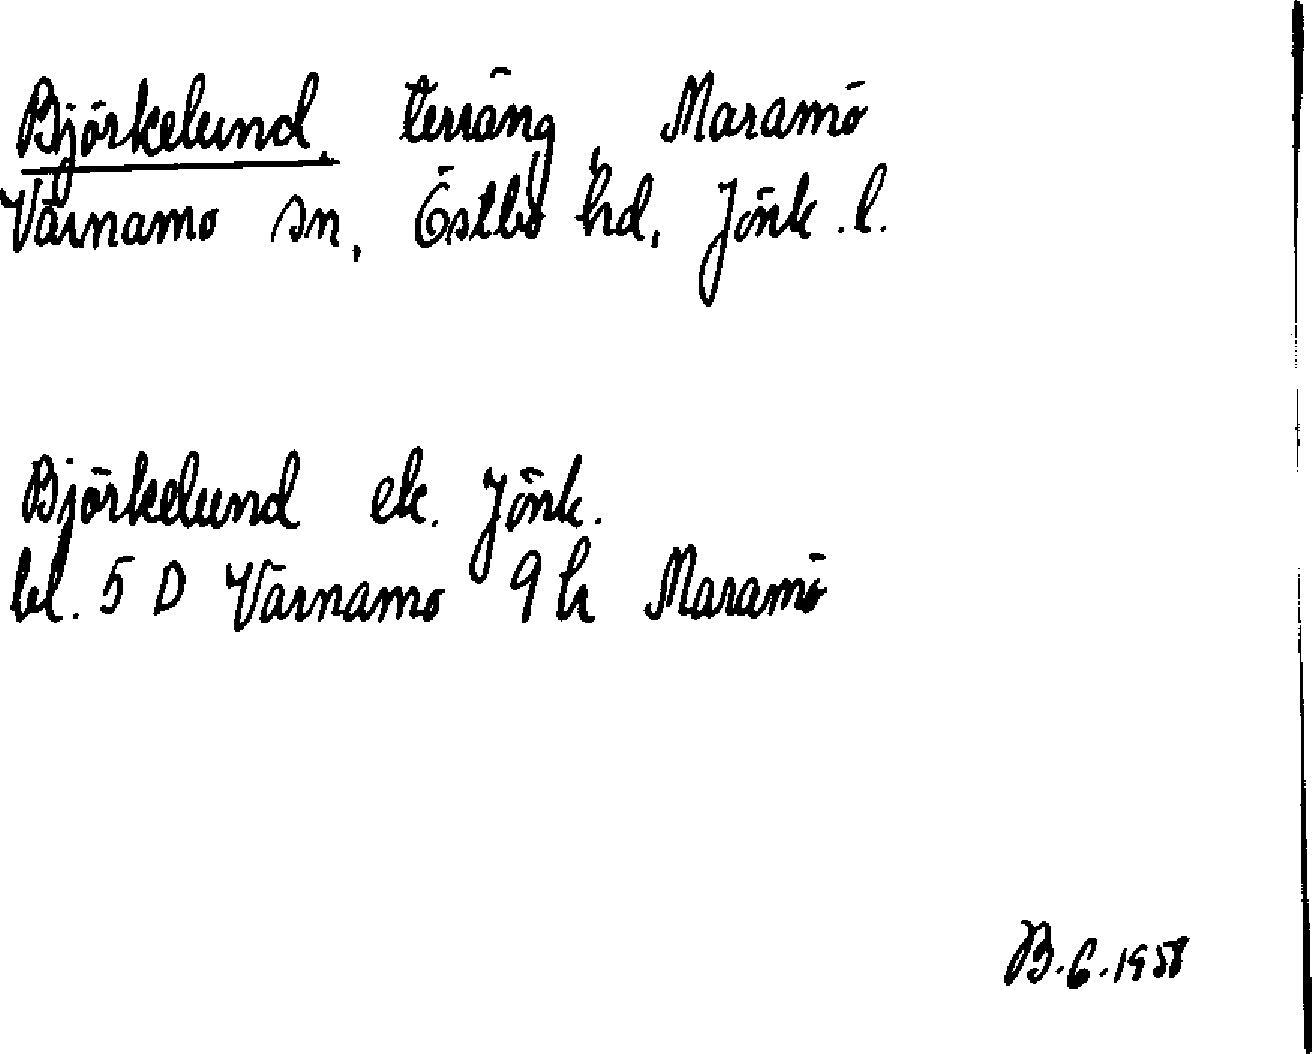 Björkelund, terräng, Maramö
Värnamo sn, Östbo hd, Jönk. l.
Björkelund ek. Jönk.
bl. 5 D Värnamo 9 h Maramö
B.G. 1958